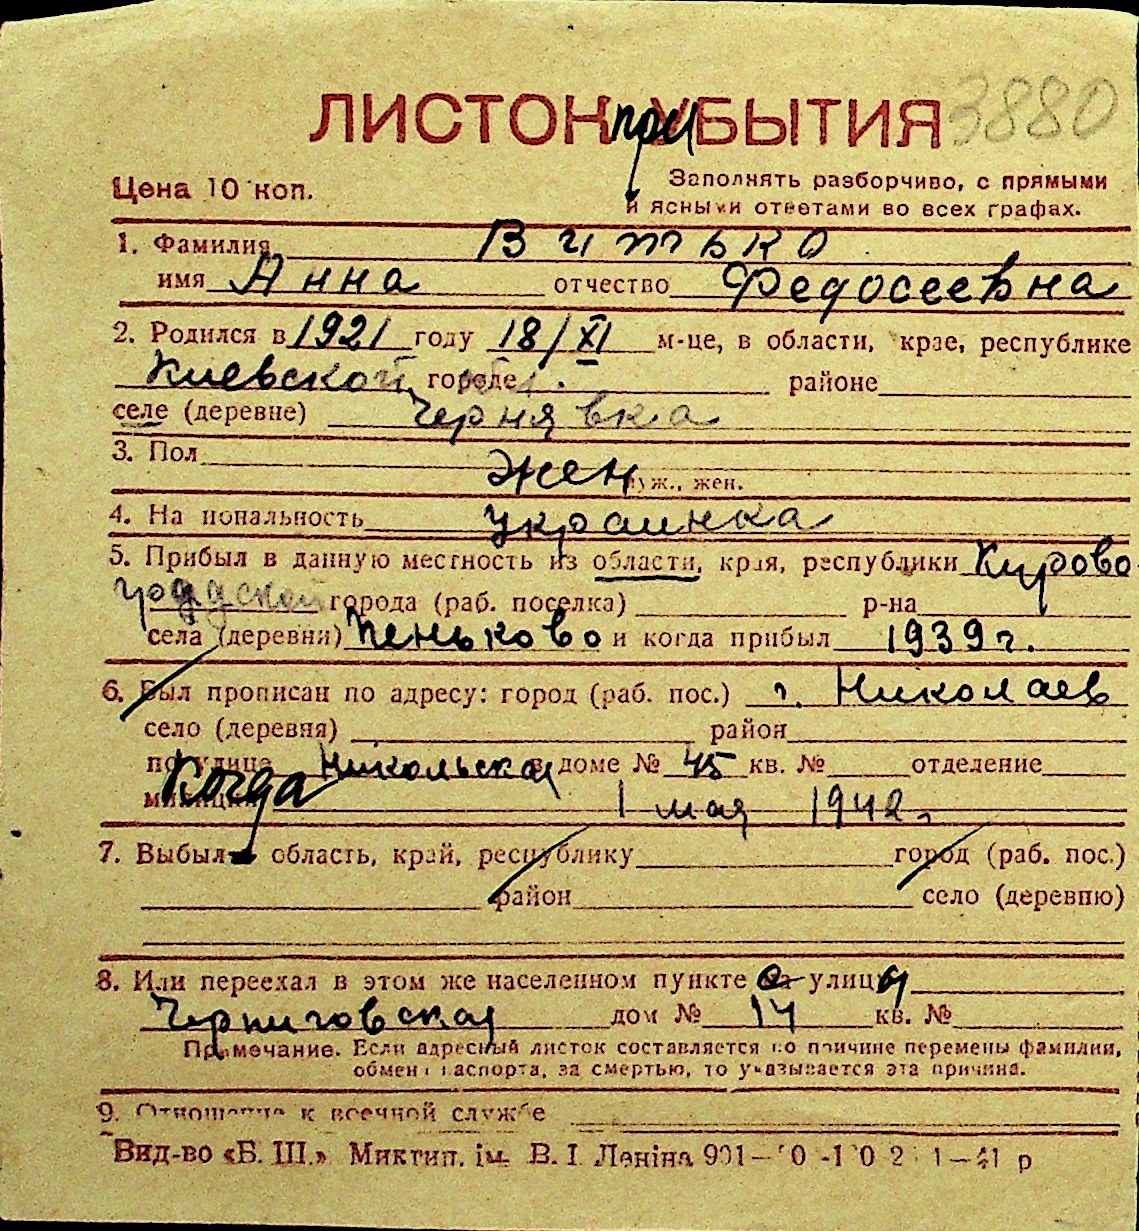 ЛИСТОК при УБЫТИЯ 3880
Цена 10 коп.
Заполнять разборчиво, с прямыми
и ясными ответами во всех графах.
1. Фамилия Витько
имя Анна отчество Федосеевна
2. Родился в 1921 году 18/XI м-це, в области, крае, республике
Киевской городе районе
селе (деревне) Чернявка
3. Пол жен
муж., жен.
4. Национальность украинка
5. Прибыл в данную местность из области, края, республики Кирово
градской города (раб. поселка) р-на
села (деревни) Пеньково и когда прибыл 1939 г.
6. Был прописан по адресу: город (раб. пос.) г. Николаев
село (деревня) район
по улице Никольская в доме № 45 кв. № отделение
милиции Когда 1 мая 1942 г.
7. Выбыл в область, край, республику город (раб. пос.)
район село (деревню)
8. Или переехал в этом же населенном пункте на улицу
Черниговская дом № 14 кв. №
Примечание. Если адресный листок составляется по причине перемены фамилии,
обмена паспорта, за смертью, то указывается эта причина.
9. Отношение к военной службе
Вид-во «Б. Ш.» Миктип. ім. В. І. Леніна